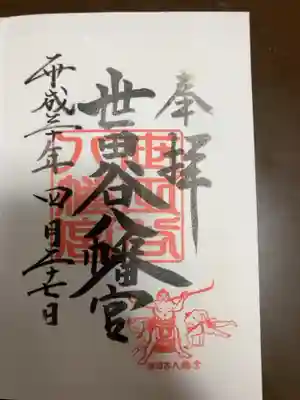 奉拝
世田谷八幡宮
世田谷
八幡宮
平成三十年四月二十七日
世田谷八幡宮